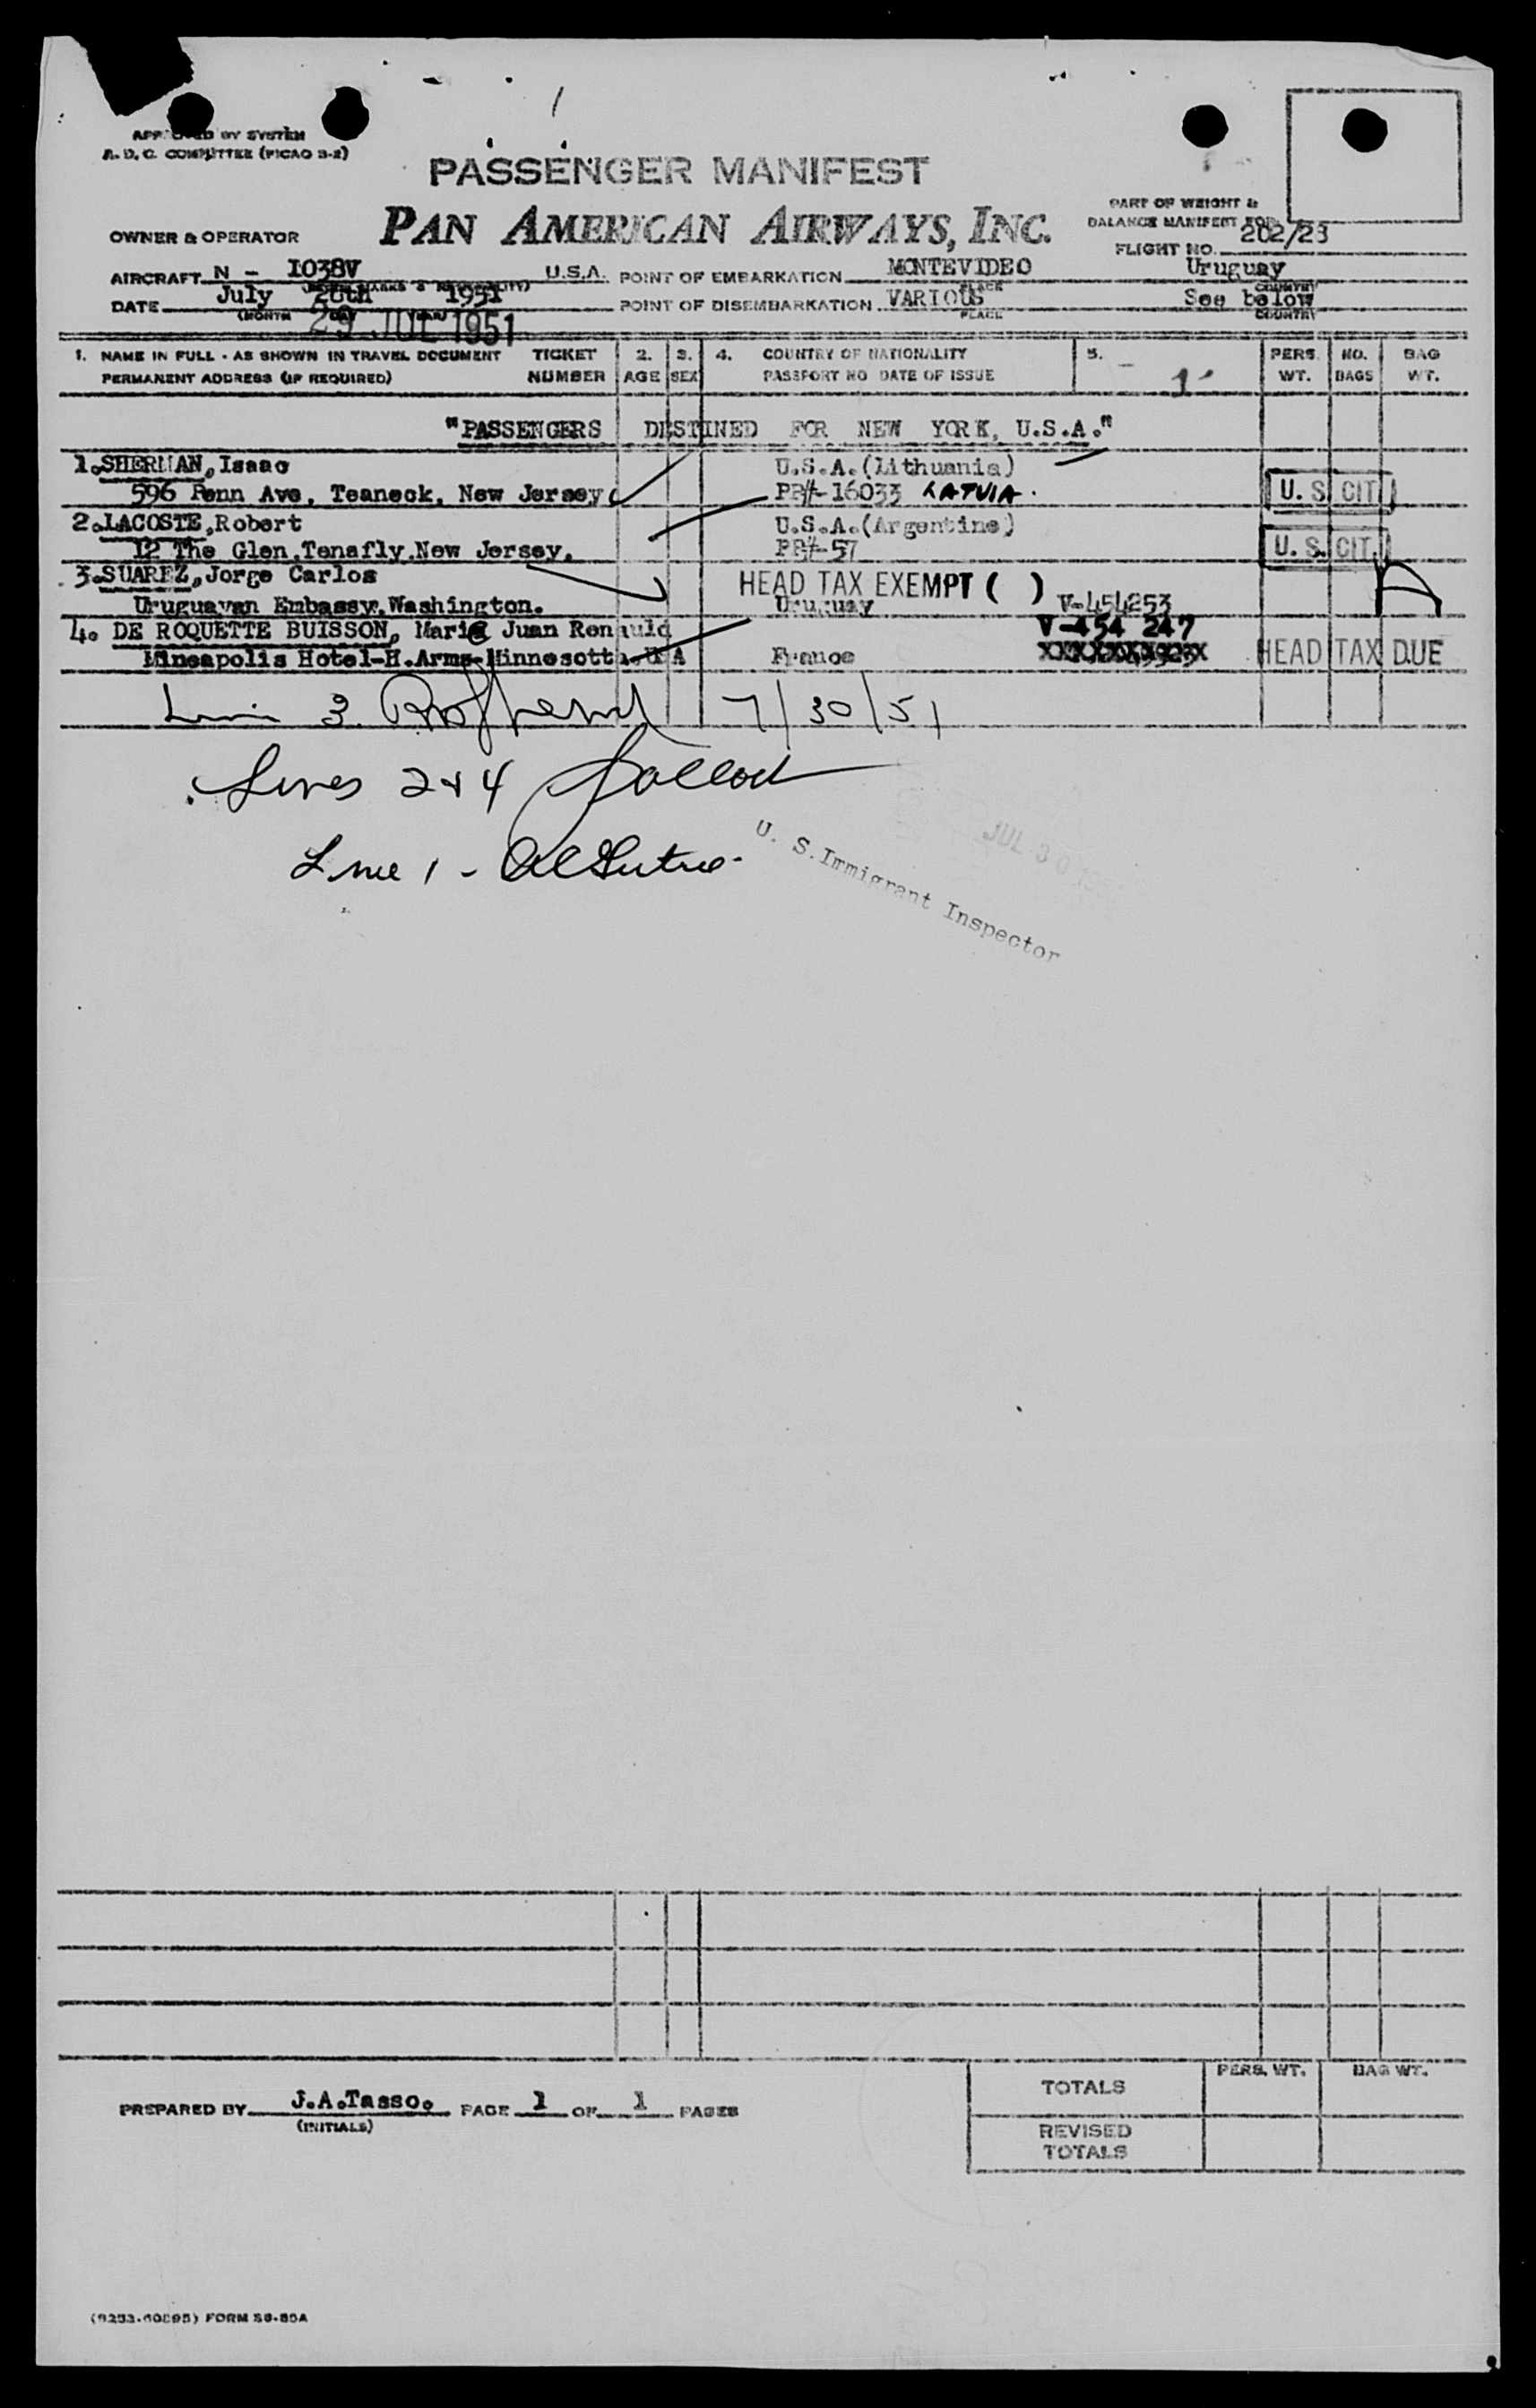 APPROVED BY SYSTEM
A. D. C. COMMITTEE (PICAO 3-2)
PASSENGER MANIFEST
PAN AMERICAN AIRWAYS, INC.
PART OF WEIGHT &
BALANCE MANIFEST FOR
FLIGHT NO. 202/23
OWNER & OPERATOR
AIRCRAFT N - 1038V U.S.A. POINT OF EMBARKATION MONTEVIDEO Uruguay
PLACE COUNTRY
DATE July 28th 1951 POINT OF DISEMBARKATION VARIOUS See below
(MONTH DAY YEAR) PLACE COUNTRY
29 JUL 1951
1. NAME IN FULL - AS SHOWN IN TRAVEL DOCUMENT TICKET 2. 3. 4. COUNTRY OF NATIONALITY 5. PERS. NO. BAG
PERMANENT ADDRESS (IF REQUIRED) NUMBER AGE SEX PASSPORT NO DATE OF ISSUE 1 WT. BAGS WT.
"PASSENGERS DESTINED FOR NEW YORK, U.S.A."
1. SHERMAN, Isaac U.S.A.(Lithuania)
596 Penn Ave, Teaneck, New Jersey PP#-16033 LATVIA. U. S. CIT.
2. LACOSTE, Robert U.S.A.(Argentine)
12 The Glen, Tenafly, New Jersey. PP#-57 U. S. CIT.
3. SUAREZ, Jorge Carlos HEAD TAX EXEMPT ( )
Uruguayan Embassy, Washington. Uruguay V-454253
4. DE ROQUETTE BUISSON, Marie Juan Renauld V-454 247
Mineapolis Hotel-H. Arms-Minnesotta. USA France HEAD TAX DUE
Line 3 7/30/51
Lines 2 & 4
Line 1 -
U. S. Immigrant Inspector
JUL 30
PREPARED BY J.A.Tasso. PAGE 1 OF 1 PAGES
(INITIALS)
PERS. WT. BAG WT.
TOTALS
REVISED
TOTALS